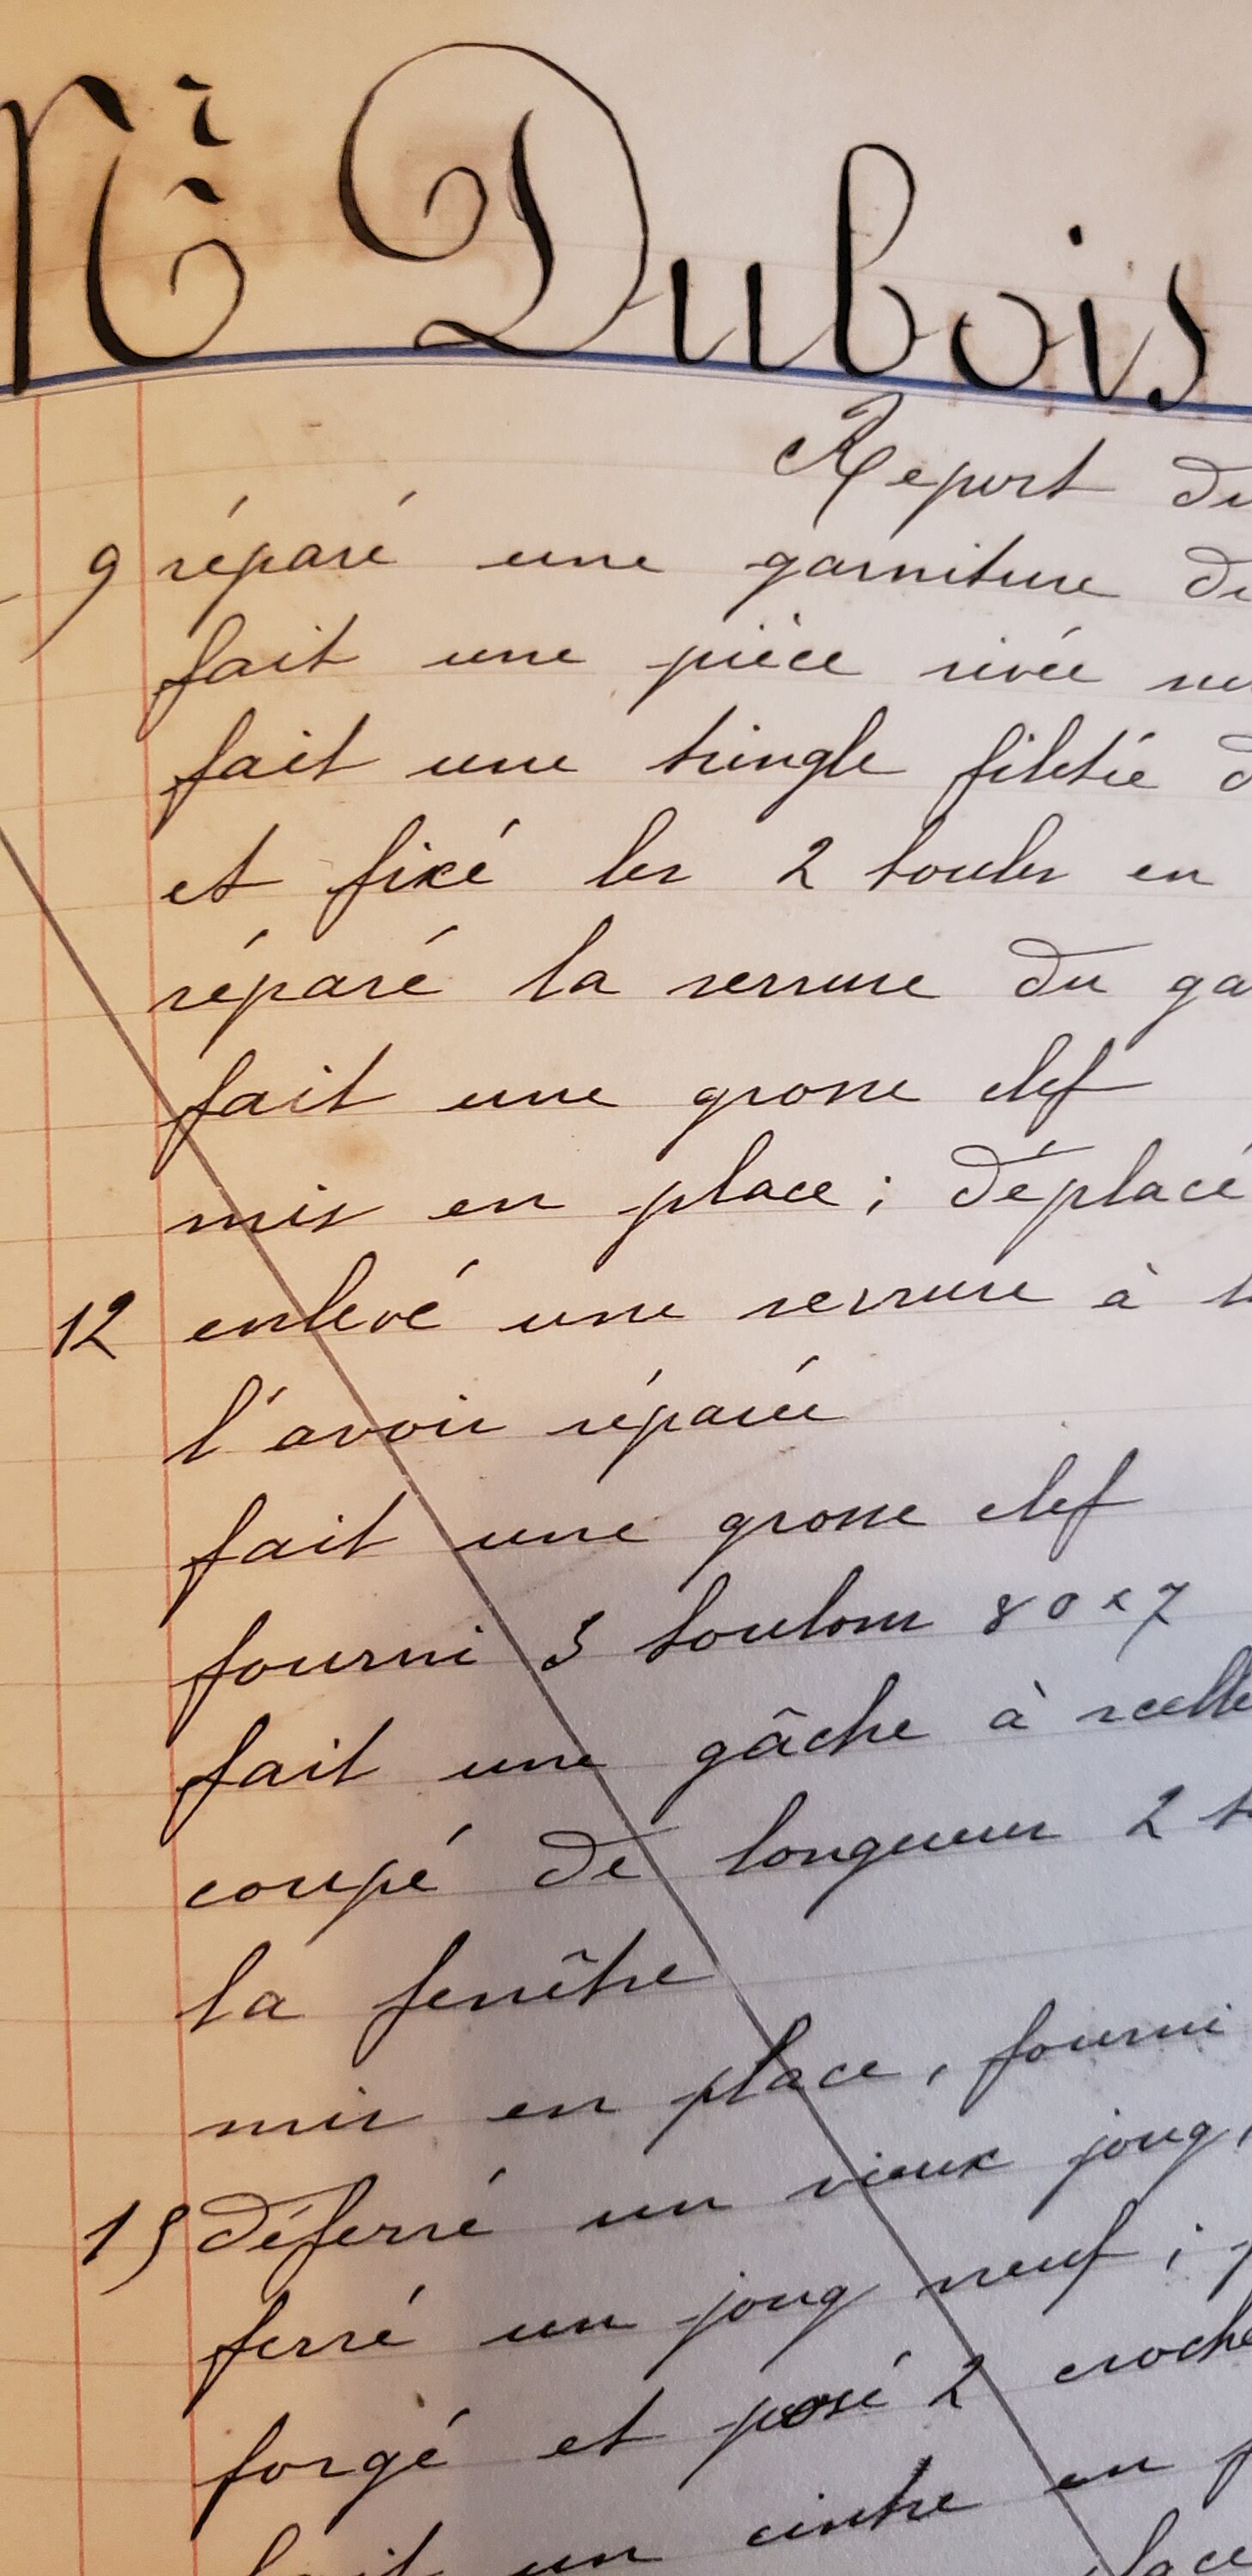 Mr Dubois
Report du
9 réparé une garniture de
fait une pièce rivée
fait une tringle filetée
et fixé les 2 boules en
réparé la serrure du
fait une grosse clef
mis en place ; déplacé
12 enlevé une serrure à
l'avoir réparée
fait une grosse clef
fourni 3 boulons 80 x 7
fait une gâche à
coupé de longueur 2
la fenêtre
mis en place, fourni
15 déferré un vieux joug,
ferré un joug neuf ;
forgé et posé 2
fait un cintre en